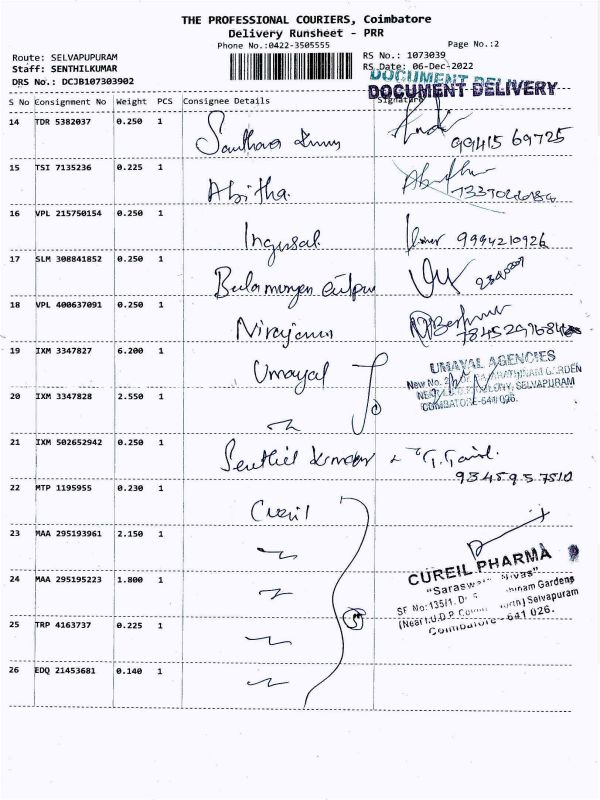 THE PROFESSIONAL COURIERS, Coimbatore
Delivery Runsheet - PRR
Phone No.:0422-3505555
Page No.:2
Route: SELVAPUPURAM
RS No.: 1073039
Staff: SENTHILKUMAR
RS Date: 06-Dec-2022
DRS No.: DCJB107303902
DOCUMENT DELIVERY
DOCUMENT DELIVERY
S No Consignment No Weight PCS Consignee Details Signature
14 TDR 5382037 0.250 1
99415 69725
15 TSI 7135236 0.225 1 Abitha.
16 VPL 215750154 0.250 1 9994210926
17 SLM 308841852 0.250 1
18 VPL 400637091 0.250 1 Nirajann
19 IXM 3347827 6.200 1 Umayal
UMAYAL AGENCIES
New No. GARDEN
COLONY, SELVAPURAM
COIMBATORE-641 026.
20 IXM 3347828 2.550 1
21 IXM 502652942 0.250 1 Senthil Kumar
9345957510
22 MTP 1195955 0.230 1 Cureil
23 MAA 295193961 2.150 1
CUREIL PHARMA
24 MAA 295195223 1.800 1
"Saraswathi Nivas"
SF No:135/1, Gardens
(Near I.U.D.P. North) Selvapuram
Coimbatore - 641 026.
25 TRP 4163737 0.225 1
5
26 EDQ 21453681 0.140 1